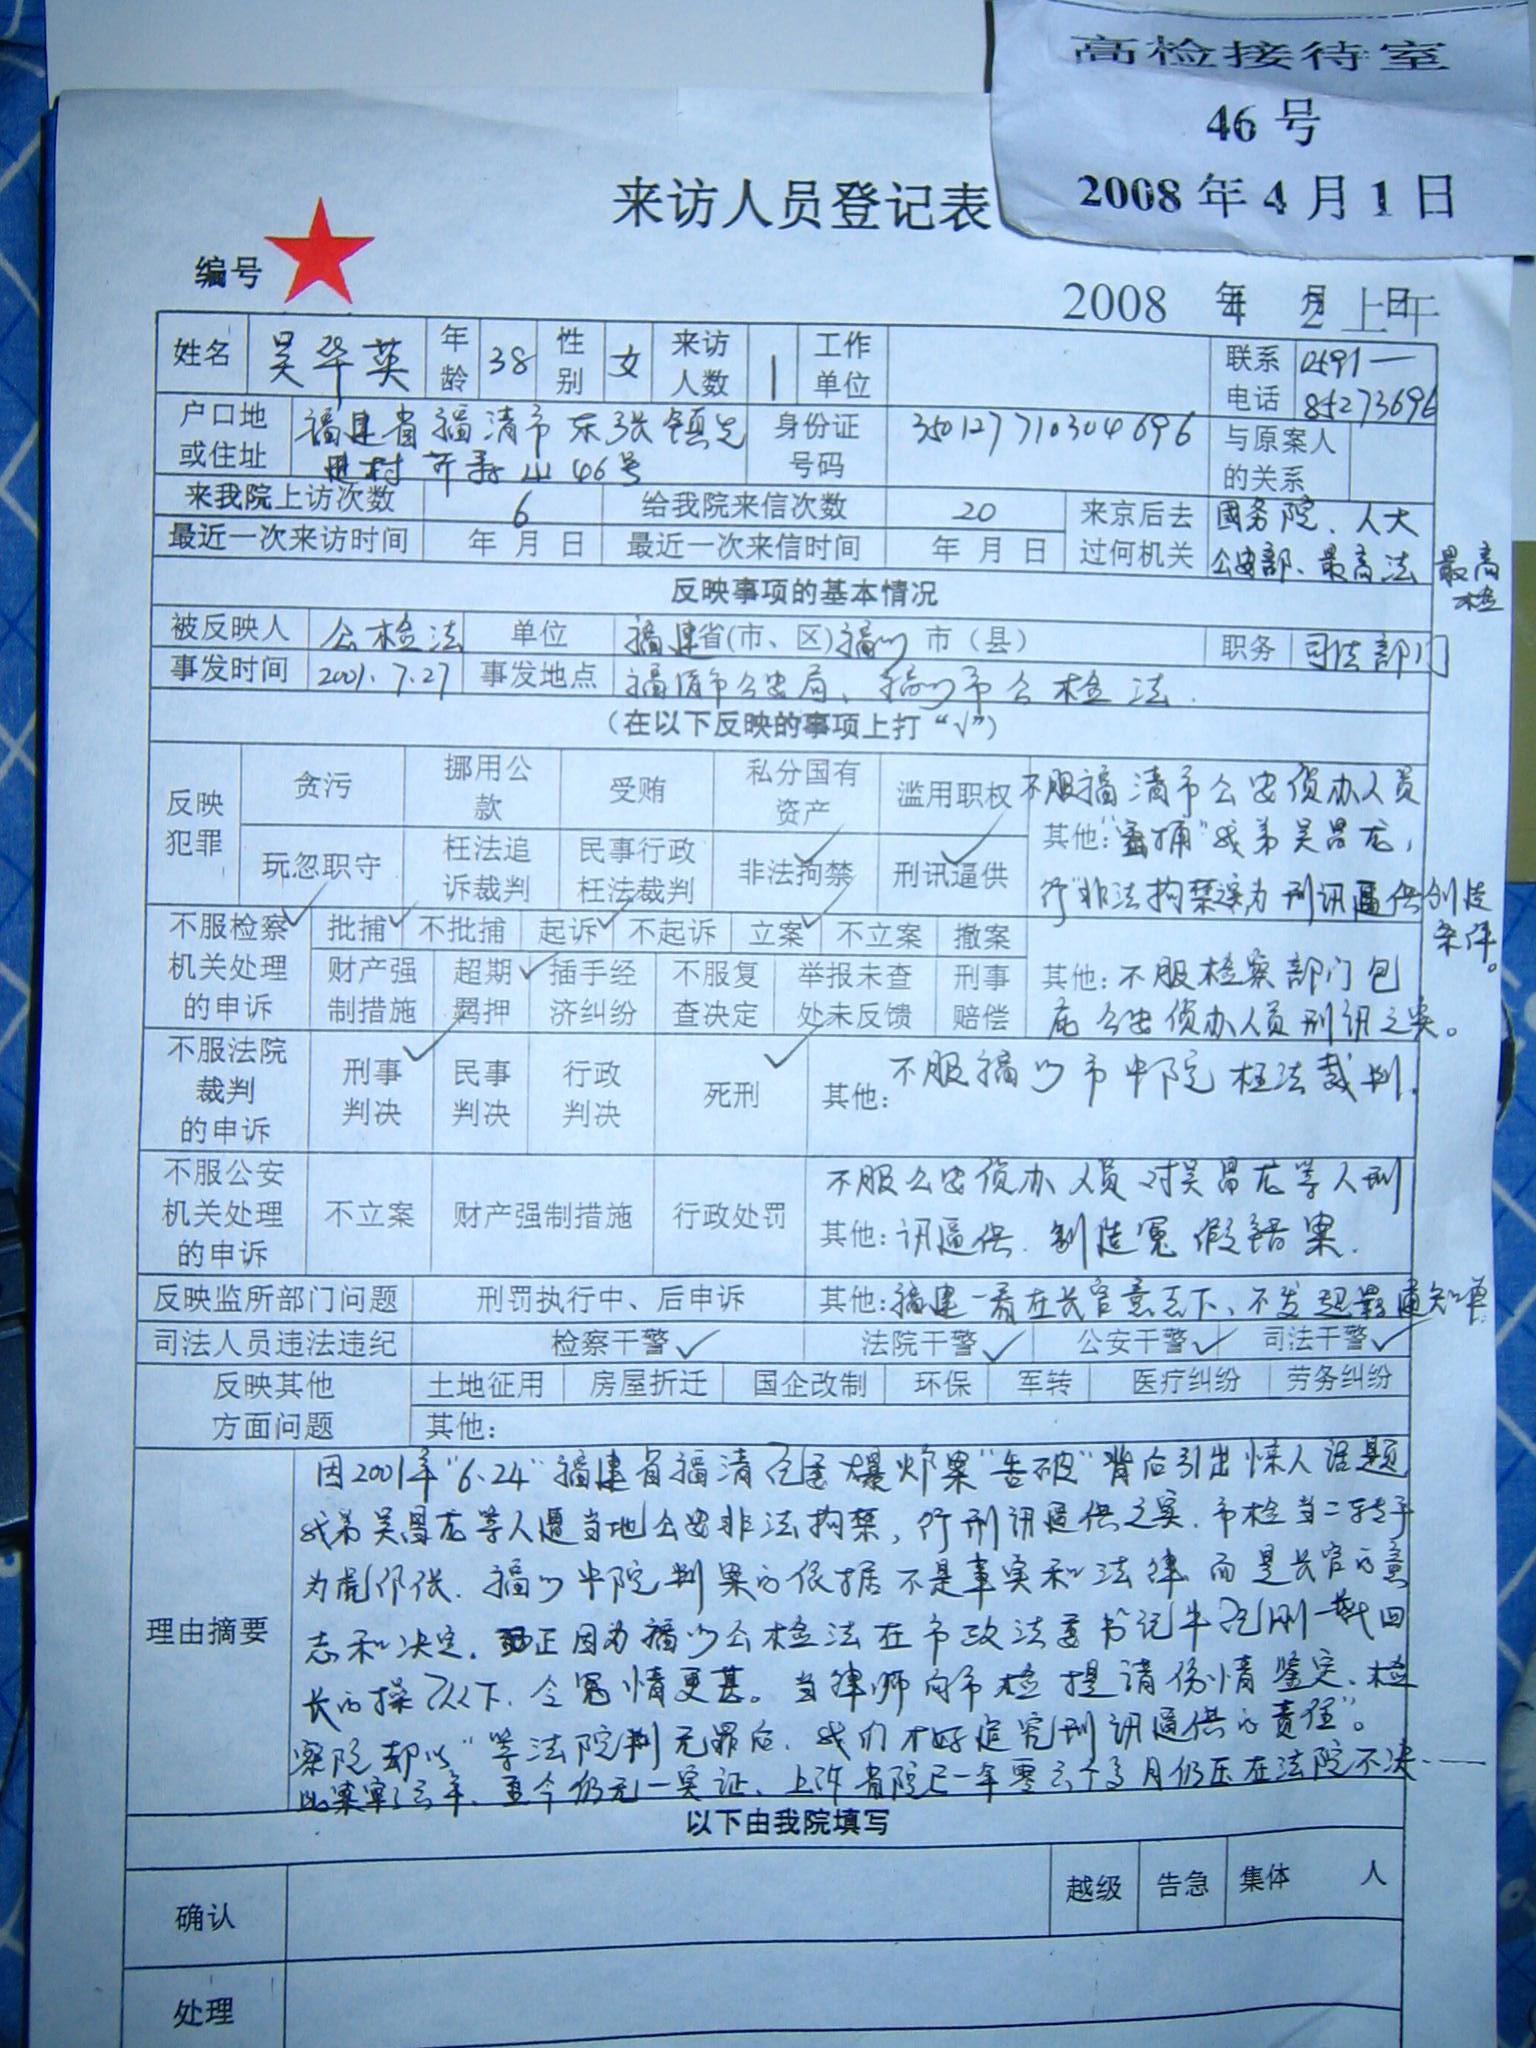 高检接待室
46号
2008年4月1日
来访人员登记表
编号
2008 年 月 上午
姓名 吴华英 年龄 38 性别 女 来访人数 1 工作单位 联系电话 0591—85273696
户口地或住址 福建省福清市东张镇 村 46号 身份证号码 350127710304696 与原案人的关系
来我院上访次数 6 给我院来信次数 20 来京后去过何机关 国务院、人大公安部、最高法 最高检
最近一次来访时间 年 月 日 最近一次来信时间 年 月 日
反映事项的基本情况
被反映人 公检法 单位 福建省(市、区)福州市(县) 职务 司法部门
事发时间 2001.7.27 事发地点 福清市公安局、福州市公检法.
(在以下反映的事项上打“√”)
反映犯罪 贪污 挪用公款 受贿 私分国有资产 滥用职权
玩忽职守 枉法追诉裁判 民事行政枉法裁判 非法拘禁 刑讯逼供
不服福清市公安侦办人员
其他:“密捕”我弟吴昌龙,
行非法拘禁 为刑讯逼供创造条件。
不服检察机关处理的申诉 批捕 不批捕 起诉 不起诉 立案 不立案 撤案
财产强制措施 超期羁押 插手经济纠纷 不服复查决定 举报未查处未反馈 刑事赔偿
其他:不服检察部门包
庇公安侦办人员刑讯之实。
不服法院裁判的申诉 刑事判决 民事判决 行政判决 死刑 其他: 不服福州市中院枉法裁判.
不服公安机关处理的申诉 不立案 财产强制措施 行政处罚
不服公安侦办人员对吴昌龙等人刑
其他:讯逼供.制造冤假错案.
反映监所部门问题 刑罚执行中、后申诉 其他:福建一看在长官意志下、不发超羁通知单.
司法人员违法违纪 检察干警 √ 法院干警 √ 公安干警 √ 司法干警 √
反映其他方面问题 土地征用 房屋折迁 国企改制 环保 军转 医疗纠纷 劳务纠纷
其他:
理由摘要
因2001年“6.24”福建省福清 爆炸案“告破”背后引出惊人话题
我弟吴昌龙等人遭当地公安非法拘禁,行刑讯逼供之实.市检当二转手
为虎作伥.福州中院判案的依据不是事实和法律 而是长官的意
志和决定.正因为福州公检法在市政法委书记牛纪刚
长的操纵下、令冤情更甚。当律师向市检提请伤情鉴定、检
察院却以“等法院判无罪后、我们才好追究刑讯逼供的责任”。
此案 年、至今仍无一实证、上诉省院已一年零六个多月仍压在法院不决——
以下由我院填写
确认 越级 告急 集体 人
处理